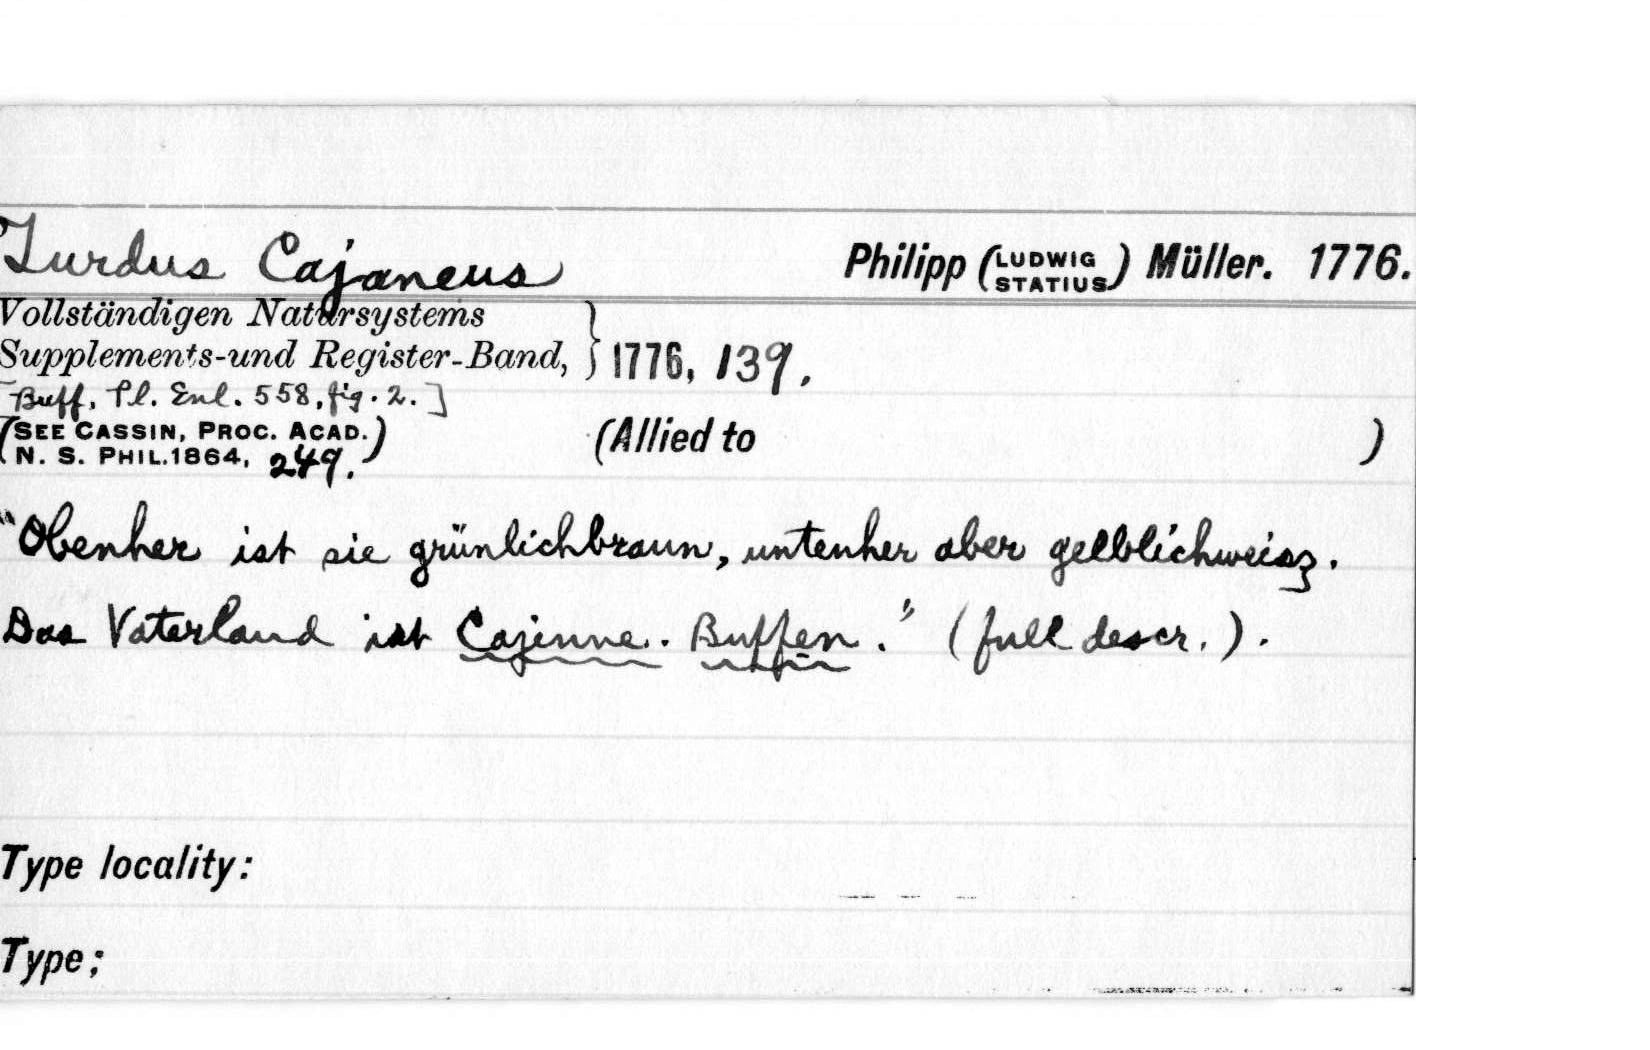 Turdus Cajaneus Philipp (LUDWIG STATIUS) Müller. 1776.
Vollständigen Natursystems
Supplements-und Register-Band, } 1776, 139.
[Buff. Pl. Enl. 558, fig. 2.]
(SEE CASSIN, PROC. ACAD.
N. S. PHIL. 1864, 249.) (Allied to )
"Obenher ist sie grünlichbraun, untenher aber gelblichweisz.
Das Vaterland ist Cajenne. Buffen." (full descr.).
Type locality:
Type;